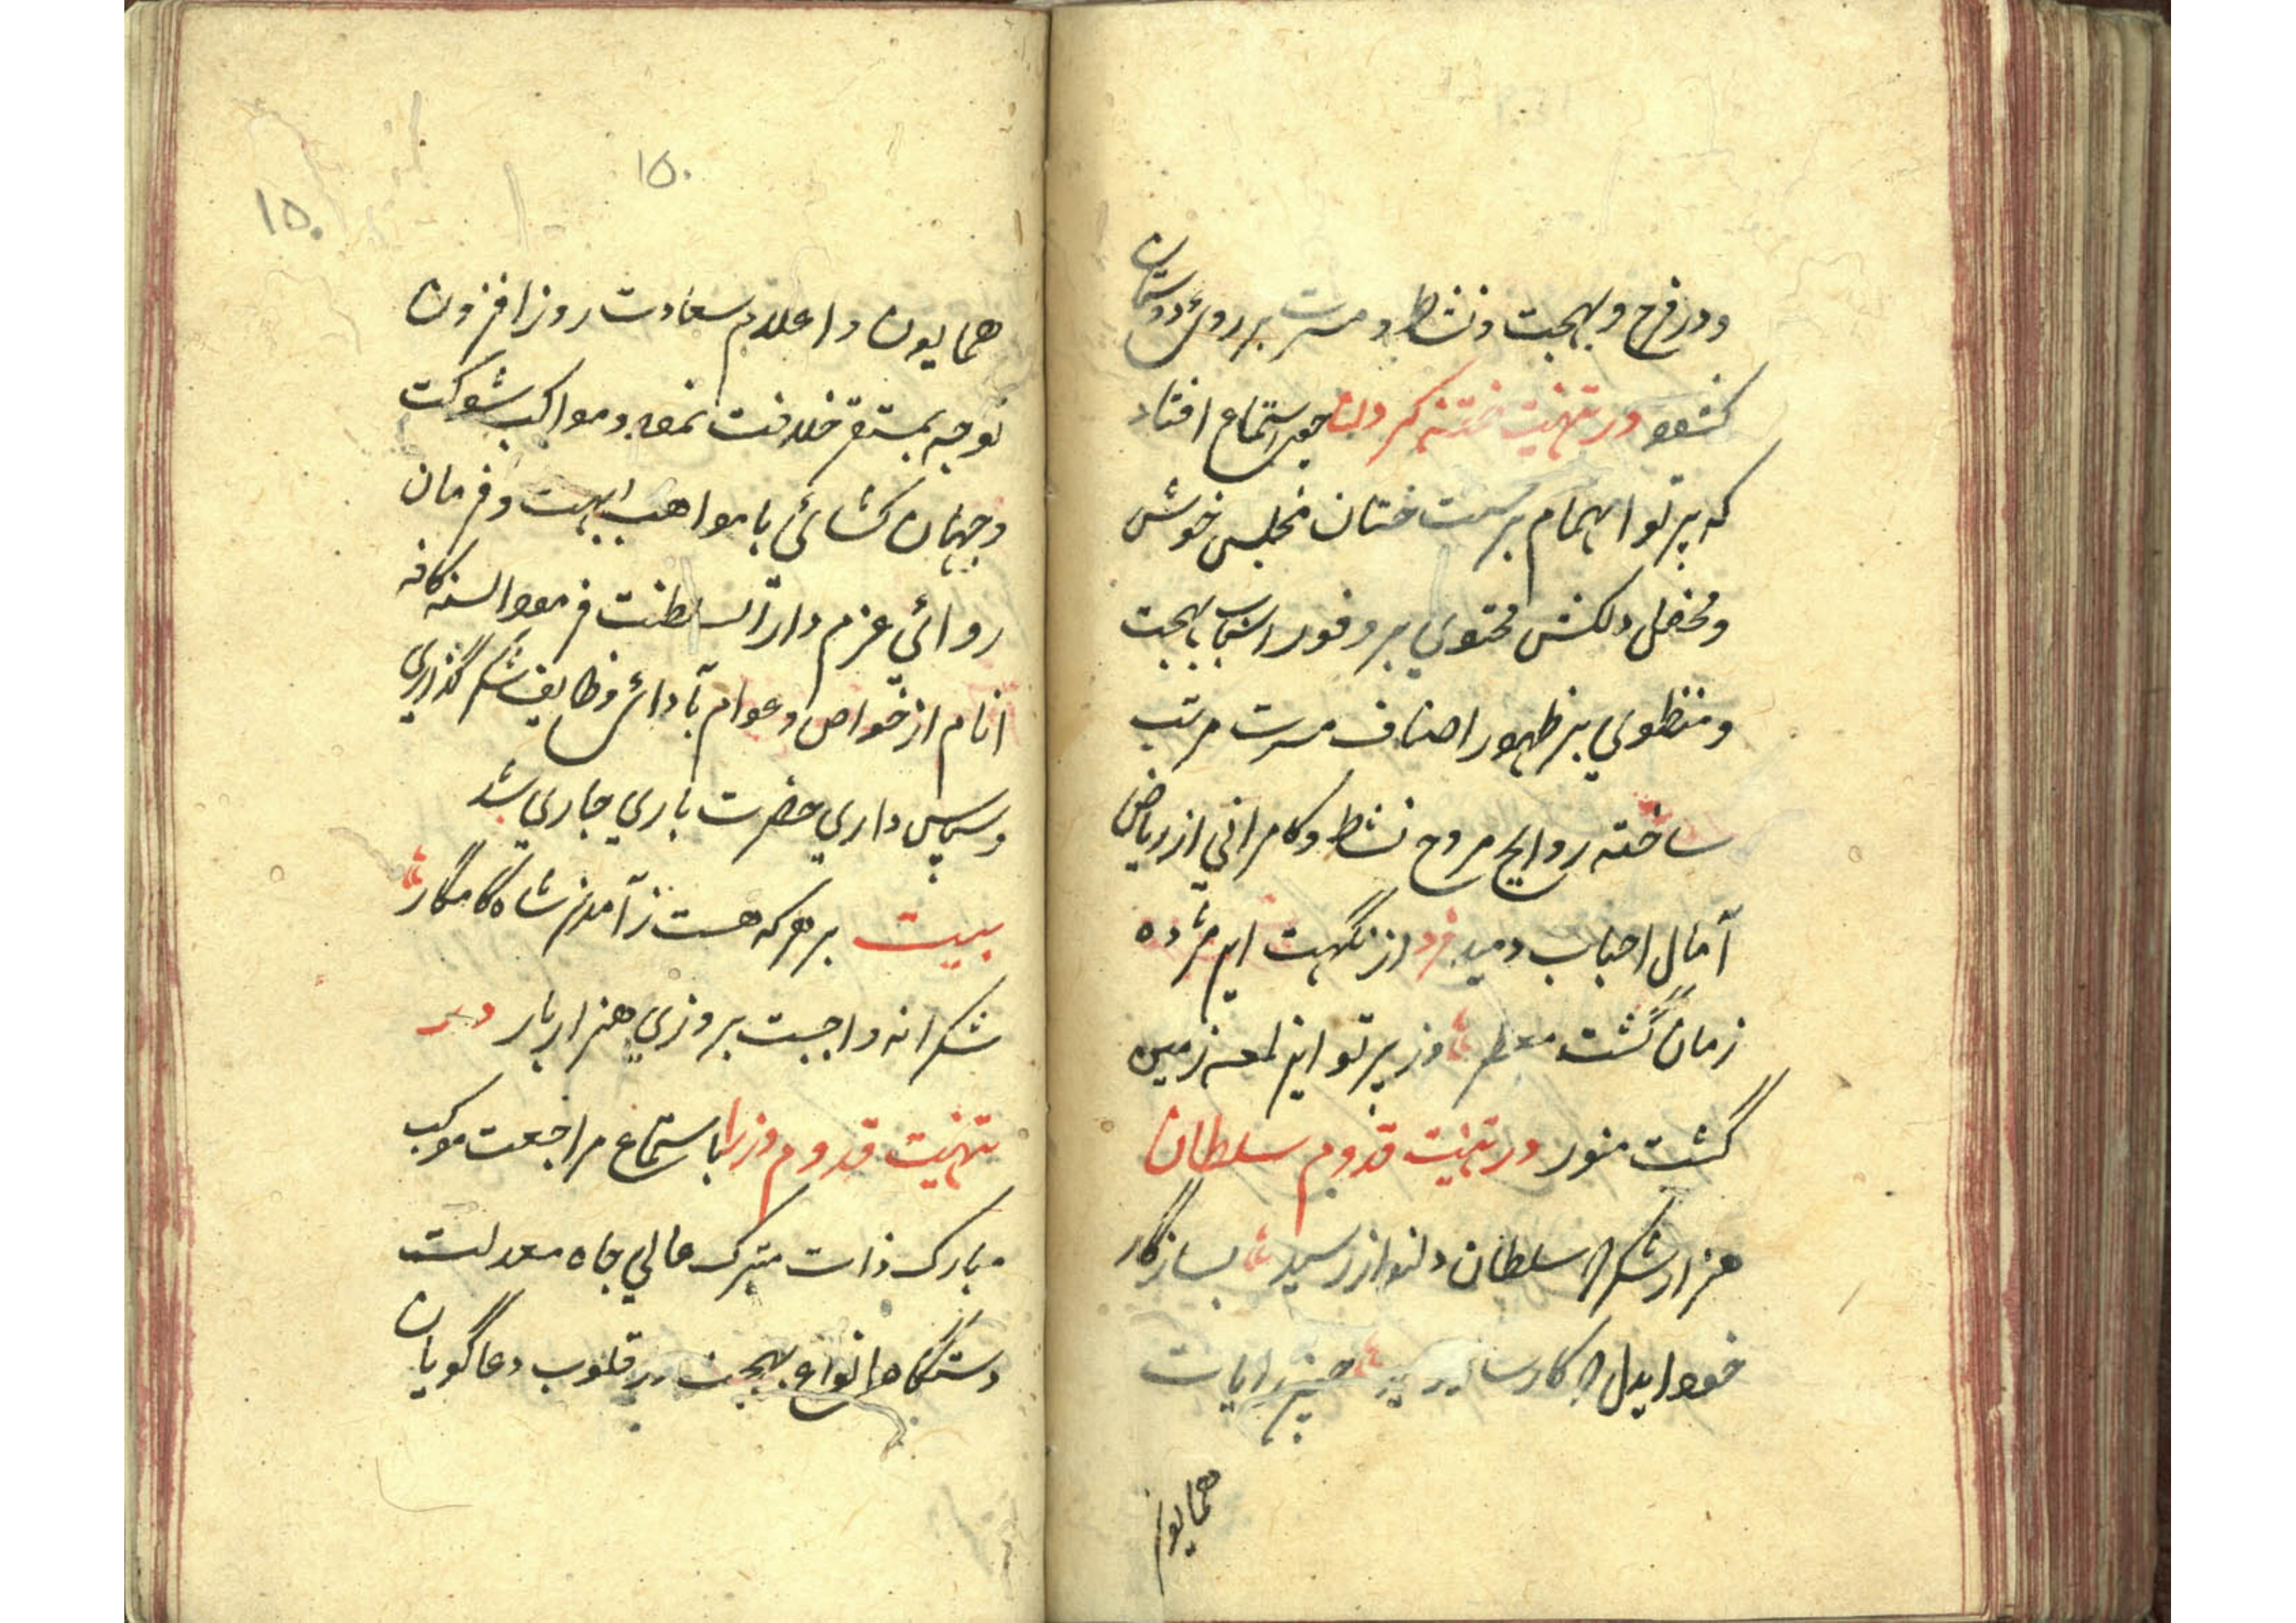 و در فرح و بهجت و نشاط و مسرت بر روی دوستان
کشود در تهنیت ختنه کردن چون استماع افتاد
که پرتو اهتمام بر سنت ختان مجلس خوش
و محفل دلکش محتوی بر وفور اسباب بهجت
و منطوی بر ظهور اصناف مسرت مرتب
ساخته روایح مروح نشاط و کامرانی از ریاض
آمال احباب دمید فرد از نگهت این مژده
زمان گشت معطر وز پرتو این لمعه زمین
گشت منور در تهنیت قدوم سلطان
هزار شکر که سلطان دلنواز رسید بسازگار
خود ایدل که کارساز رسید چون رایات
همایون
۱۵۰
۱۵۰
همایون و اعلام سعادت روز افزون
توجه بمستقر خلافت نمود و مواکب شوکت
و جهان کشائی با مواهب ابهت و فرمان
روائی عزم دار السلطنت فرمود السنه کافه
انام از خواص و عوام بآدائی وظایف شکر گذاری
و سپاس داری حضرت باری جاری شد
بیت بر هر که هست ز آمدن شاه کامگار
شکرانه واجبست بروزی هزار بار در
تهنیت قدوم وزرا باستماع مراجعت موکب
مبارک ذات متبرک عالی جاه معدلت
دستگاه انواع بهجت بر قلوب دعا گویان